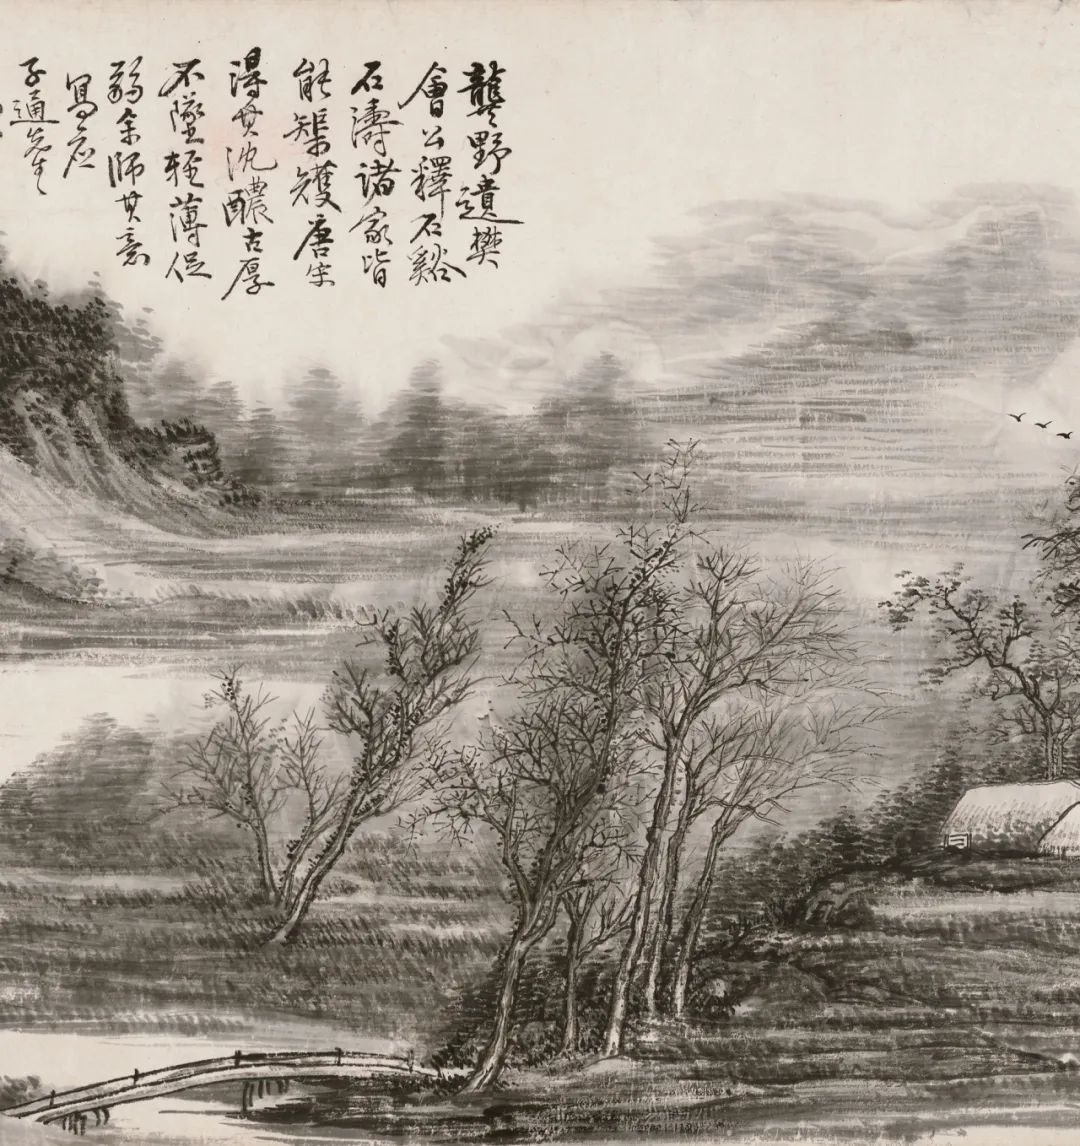 龔野遺樊
會公釋石谿
石濤諸家皆
能榘矱唐宋
得其沈醲古厚
不墜輕薄促
弱余師其意
寫應
子通先生